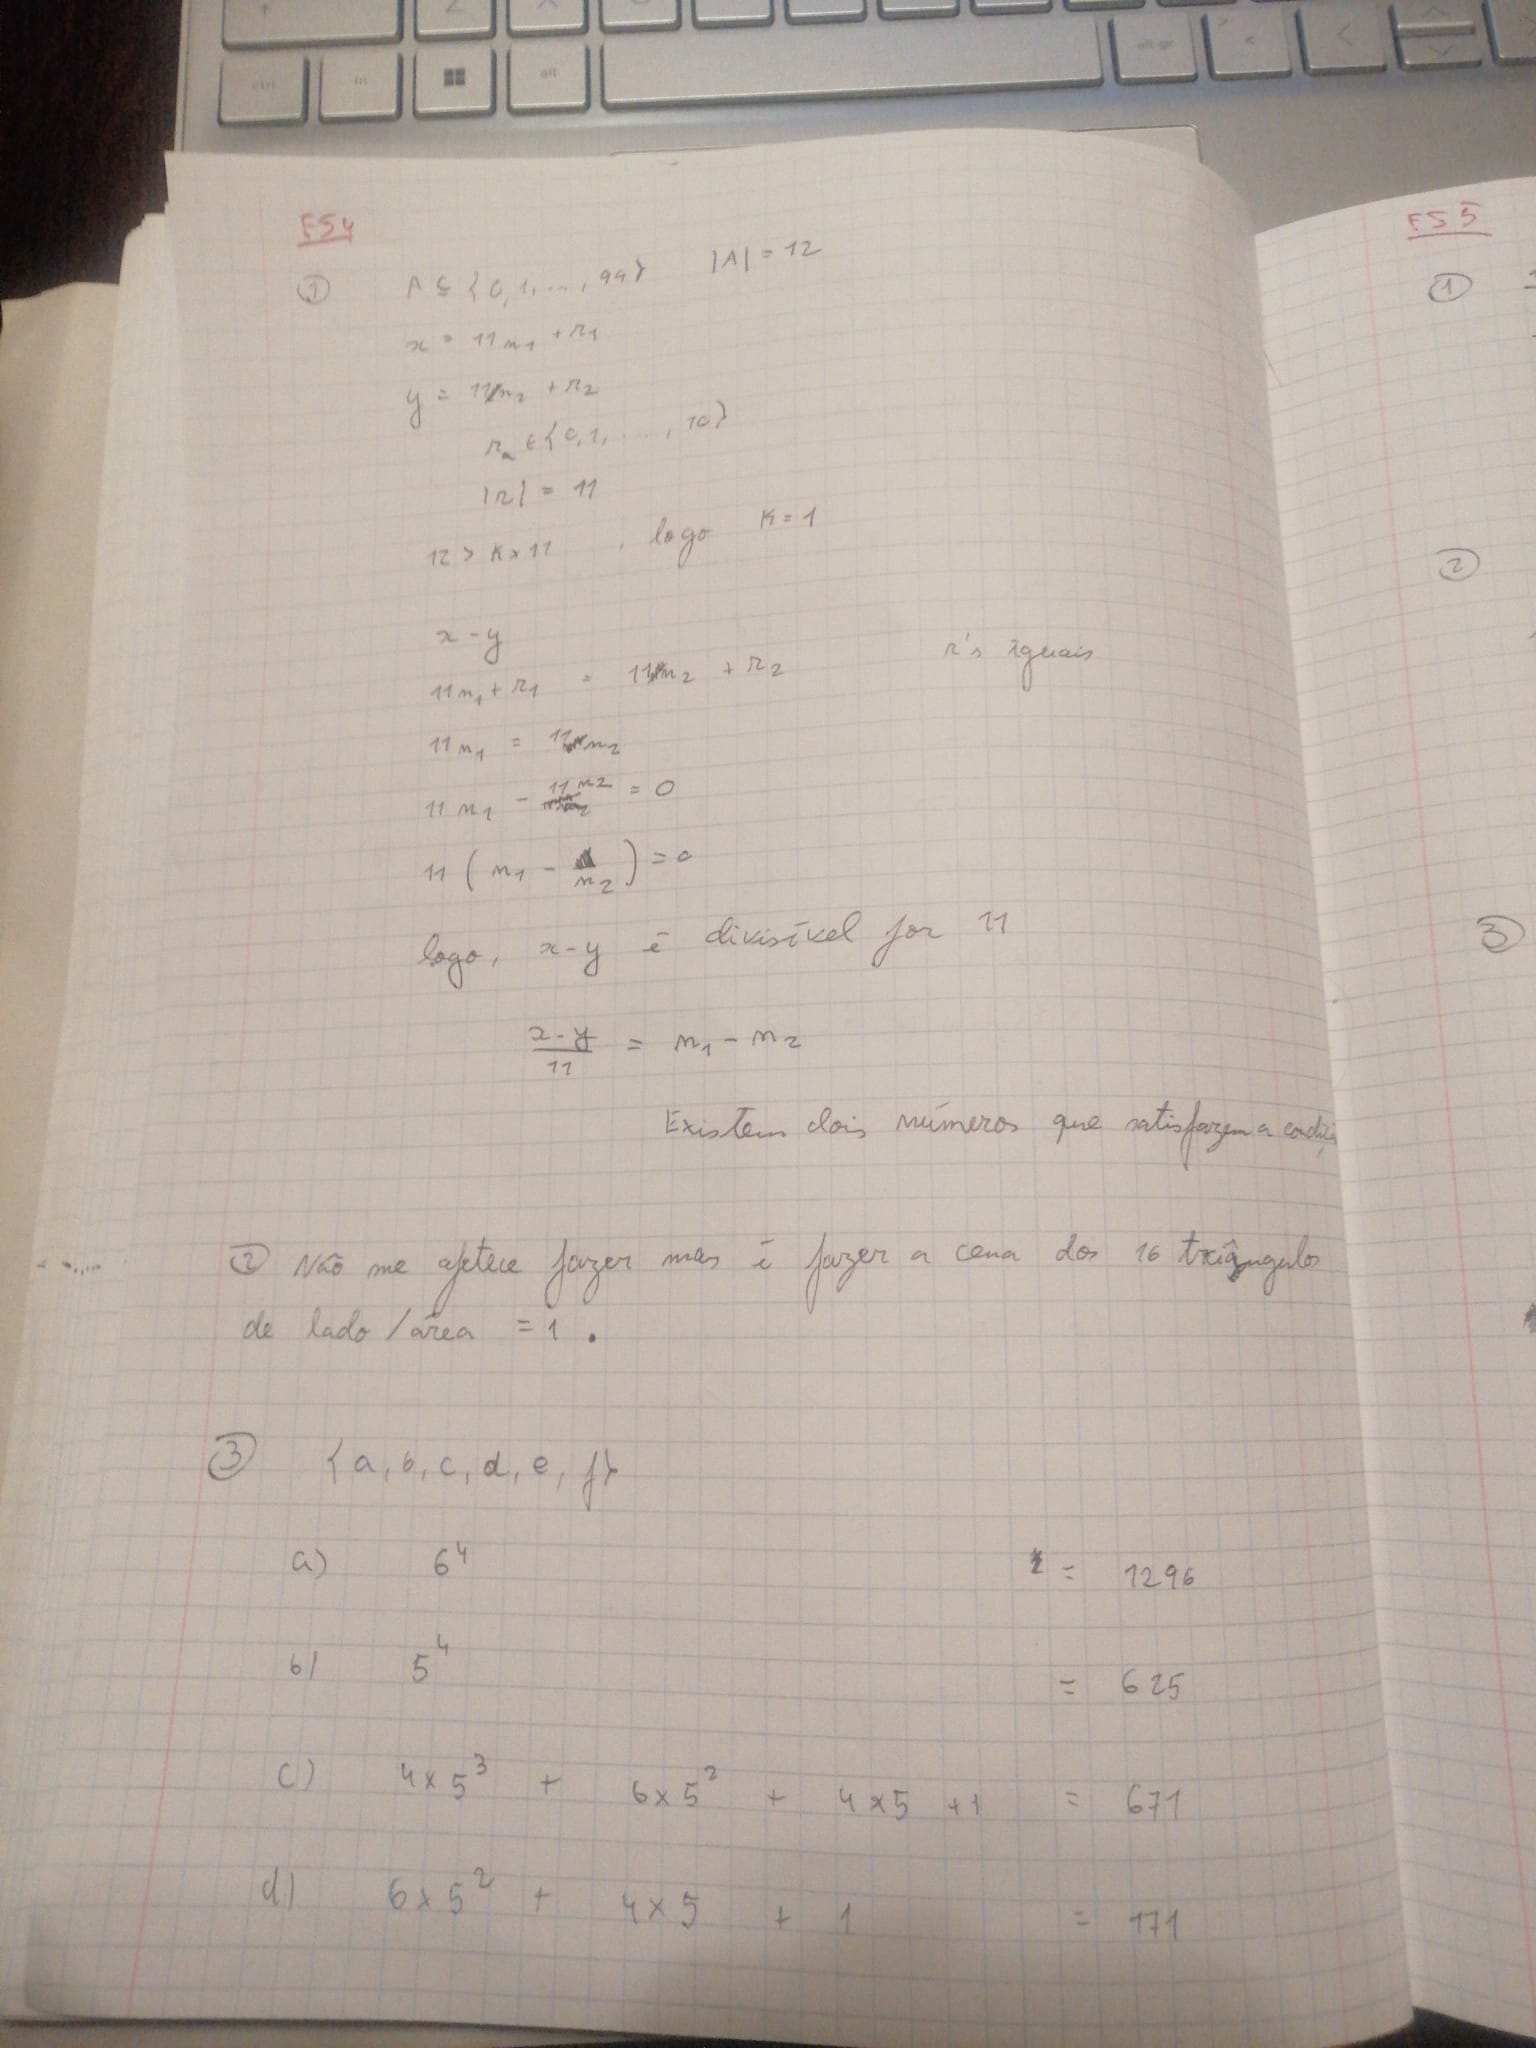 ctrl fn alt alt gr
FS4
① A ⊆ {0, 1, ..., 99} |A| = 12
x = 11n₁ + r₁
y = 11n₂ + r₂
rₐ ∈ {0, 1, ...., 10}
|r| = 11
12 > K × 11 , logo K = 1
x - y
11n₁ + r₁ = 11n₂ + r₂ r's iguais
11n₁ = 11n₂
11n₁ - 11n₂ = 0
11 ( n₁ - n₂ ) = 0
logo, x-y é divisível por 11
(x-y)/11 = n₁ - n₂
Existem dois números que satisfazem a
② Não me apetece fazer mas é fazer a cena dos 16 triângulos
de lado /área = 1 .
③ {a, b, c, d, e, f}
a) 6⁴ = 1296
b) 5⁴ = 625
c) 4×5³ + 6×5² + 4×5 +1 = 671
d) 6×5² + 4×5 + 1 = 171
FS5
①
②
③